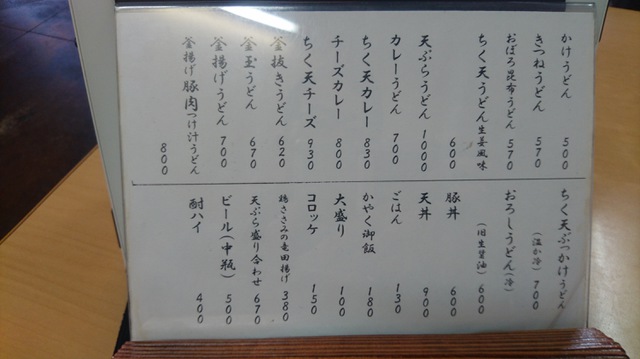 かけうどん 500
きつねうどん 570
おぼろ昆布うどん 570
ちく天うどん生姜風味 600
天ぷらうどん 1000
カレーうどん 700
ちく天カレー 830
チーズカレー 800
ちく天チーズ 930
釜抜きうどん 620
釜玉うどん 670
釜揚げうどん 700
釜揚げ豚肉つけ汁うどん 800
ちく天ぶっかけうどん (温か冷) 700
おろしうどん(冷) (旧生醤油) 600
豚丼 600
天丼 900
ごはん 130
かやく御飯 180
大盛り 100
コロッケ 150
鶏ささみの竜田揚げ 380
天ぷら盛り合わせ 670
ビール(中瓶) 500
酎ハイ 400